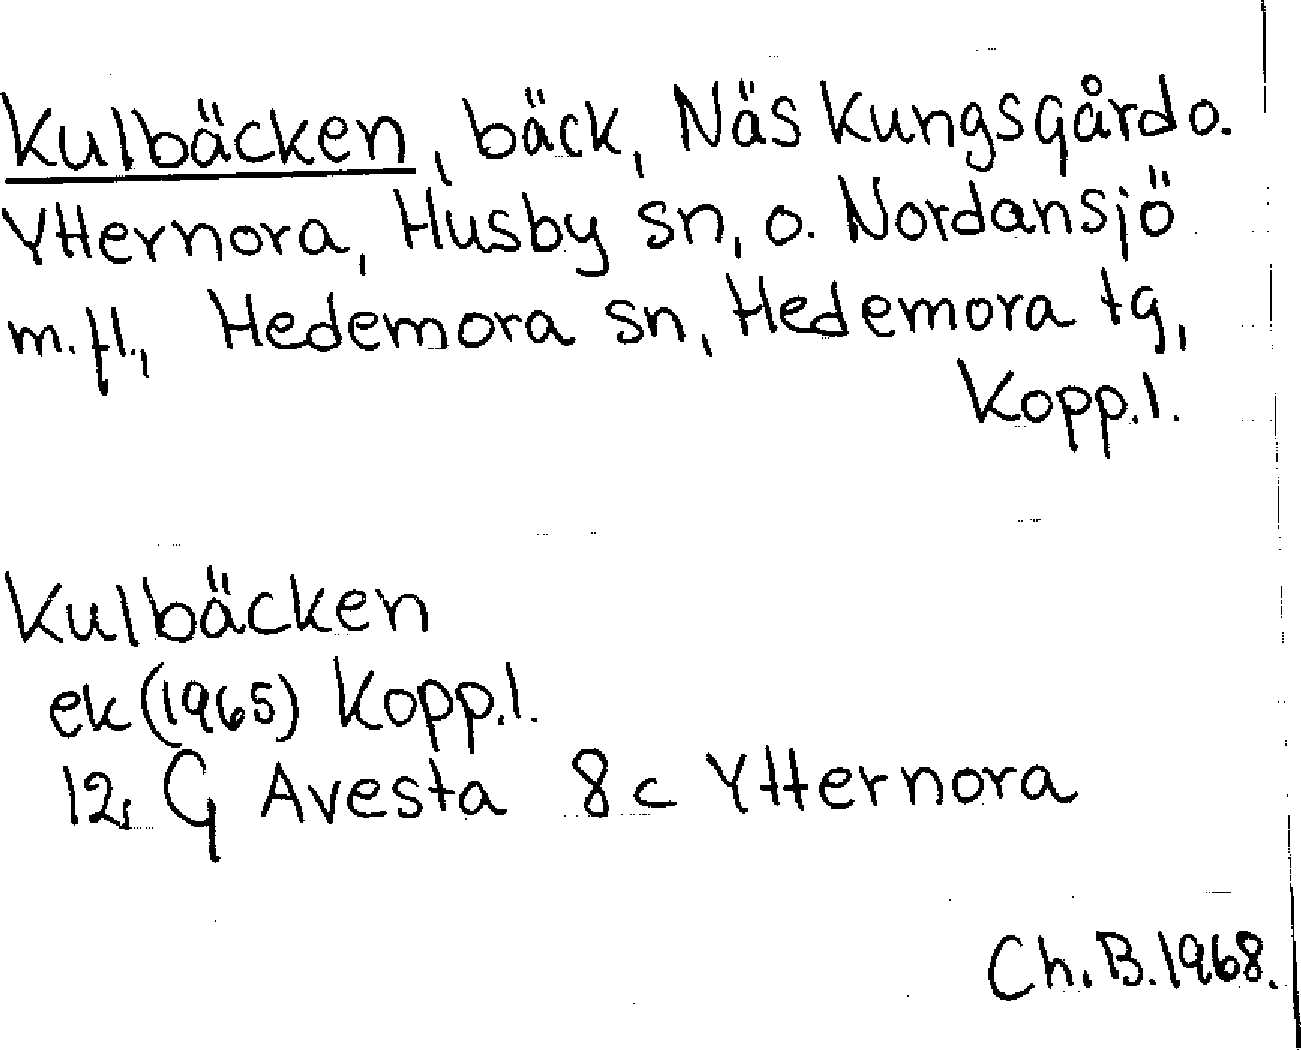 Kulbäcken, bäck, Näs Kungsgård o.
Ytternora, Husby sn, o. Nordansjö
m.fl., Hedemora sn, Hedemora tg,
Kopp.l.
Kulbäcken
ek (1965) Kopp.l.
12, G Avesta 8c Ytternora
Ch.B.1968.